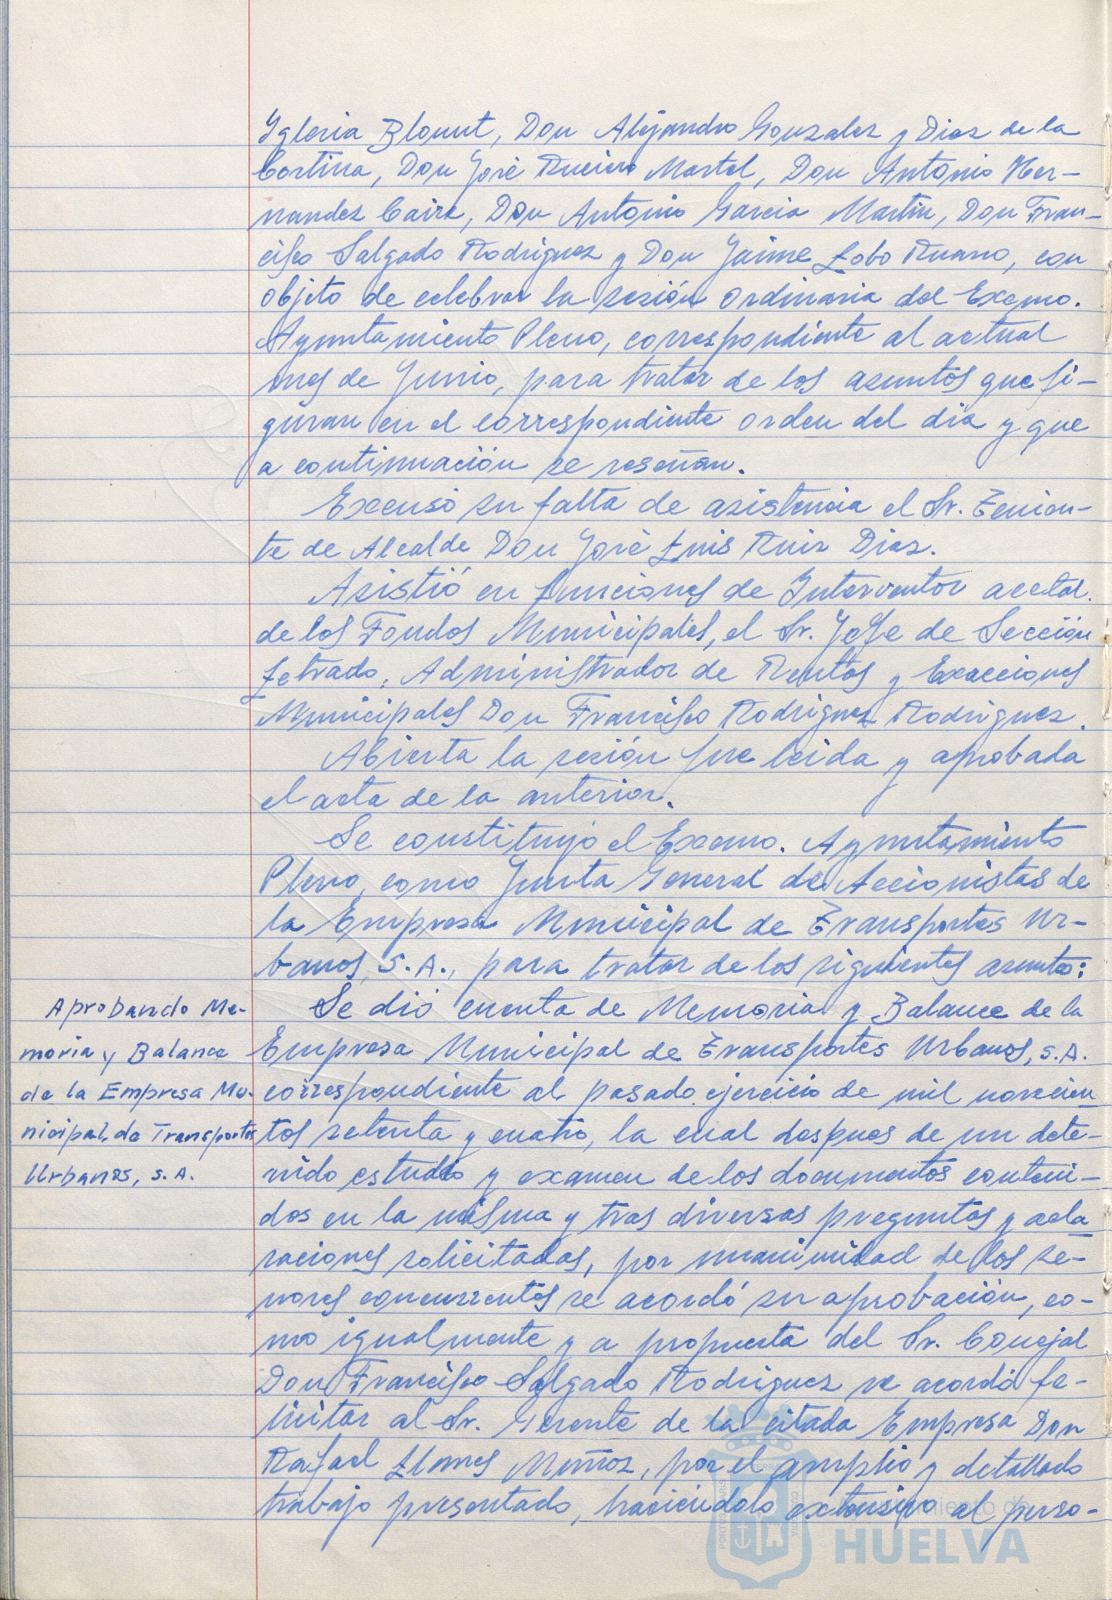 Iglesia Blount, Don Alejandro Gonzalez y Diaz de la
Cortina, Don José Rueiro Martel, Don Antonio Her-
nandez Caire, Don Antonio Garcia Martin, Don Fran-
cisco Salgado Rodriguez y Don Jaime Lobo Ruano, con
objeto de celebrar la sesión ordinaria del Excmo.
Ayuntamiento Pleno, correspondiente al actual
mes de Junio, para tratar de los asuntos que fi-
guran en el correspondiente orden del dia y que
a continuación se reseñan.
Excusó su falta de asistencia el Sr. Tenien-
te de Alcalde Don José Luis Ruiz Diaz.
Asistió en funciones de Interventor acctal.
de los Fondos Municipales, el Sr. Jefe de Sección
Letrado, Administrador de Rentas y Exacciones
Municipales Don Francisco Rodriguez Rodriguez.
Abierta la sesión fue leida y aprobada
el acta de la anterior.
Se constituyó el Excmo. Ayuntamiento
Pleno, como Junta General de Accionistas de
la Empresa Municipal de Transportes Ur-
banos, S.A., para tratar de los siguientes asuntos:
Aprobando Me-
moria y Balance
de la Empresa Mu-
nicipal de Transportes
Urbanos, S.A.
Se dió cuenta de Memoria y Balance de la
Empresa Municipal de Transportes Urbanos, S.A.
correspondiente al pasado ejercicio de mil novecien
tos setenta y cuatro, la cual despues de un dete-
nido estudio y examen de los documentos conteni-
dos en la misma y tras diversas preguntas y acla
raciones solicitadas, por unanimidad de los se-
nores concurrentes se acordó su aprobación, co-
mo igualmente y a propuesta del Sr. Concejal
Don Francisco Salgado Rodriguez se acordó fe-
licitar al Sr. Gerente de la citada Empresa Don
Rafael Llanes Muñoz, por el amplio y detallado
trabajo presentado, haciéndolo extensivo al perso-
Ayuntamiento de
HUELVA